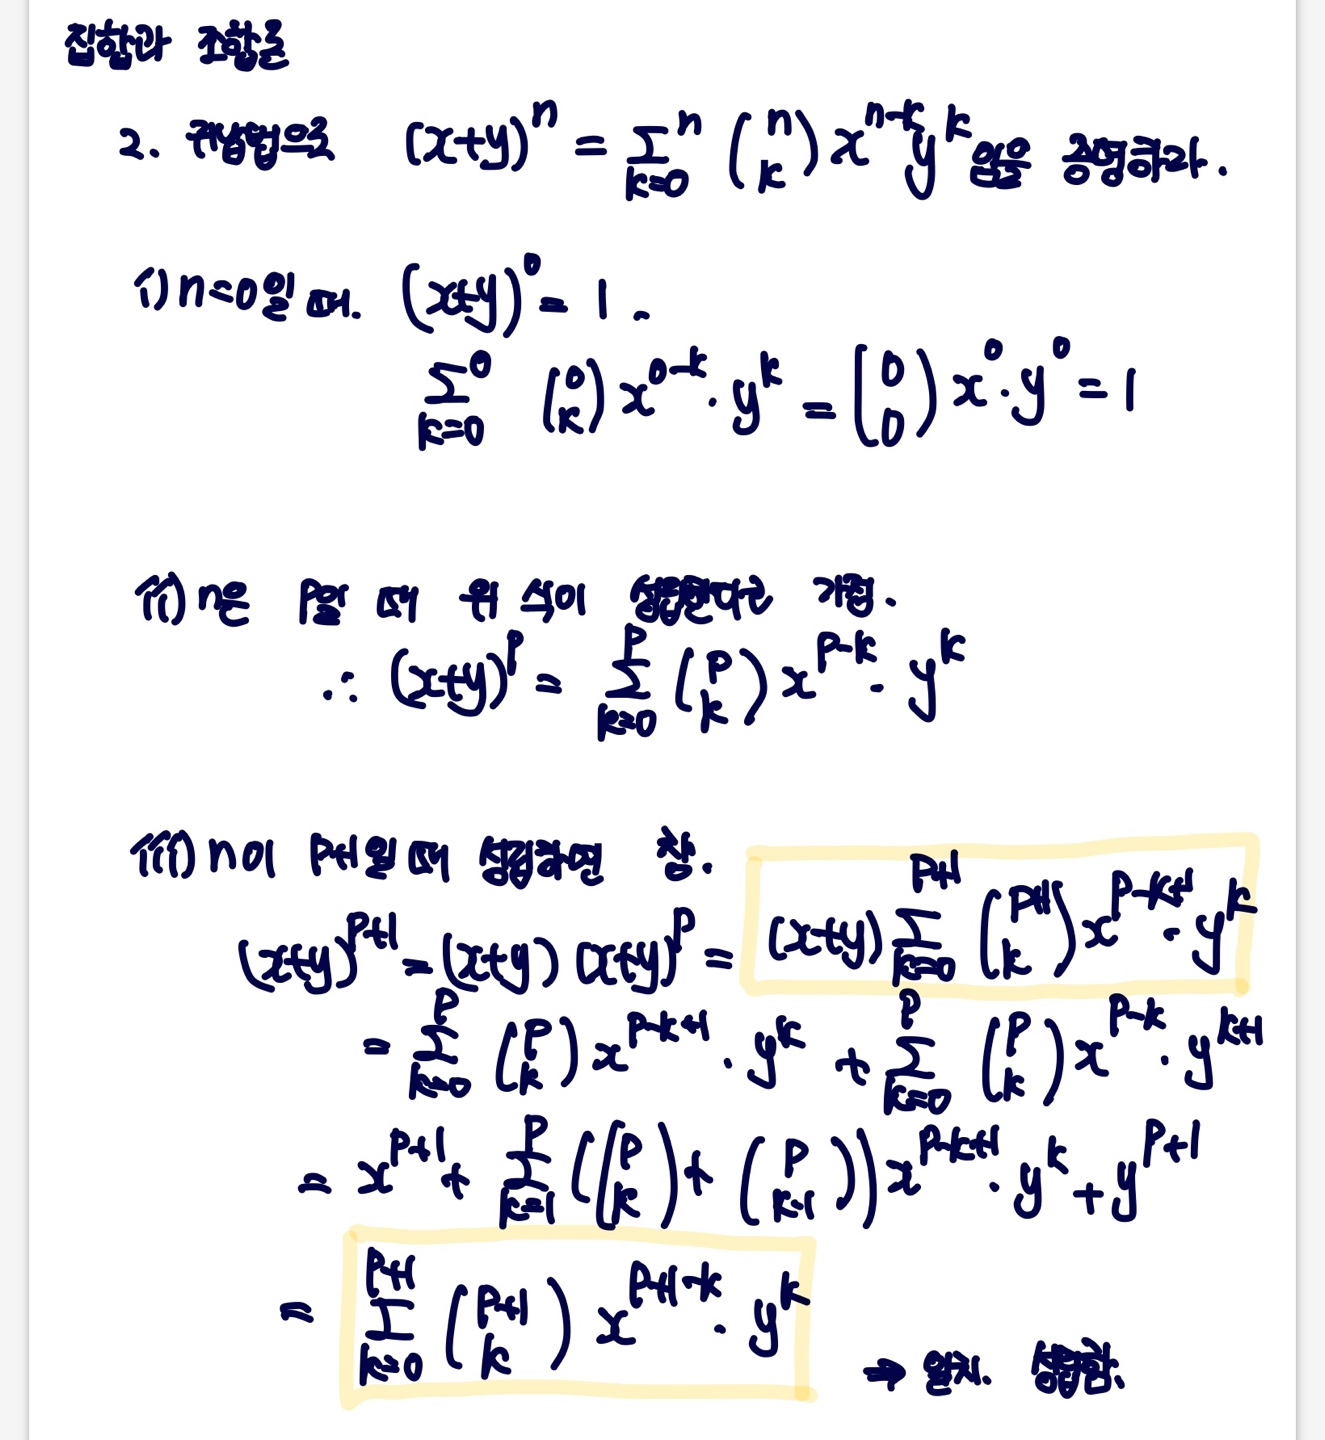 집합과 조합론
2. 귀납법으로 (x+y)^n = Σ_{k=0}^{n} (n k) x^{n-k} y^k 임을 증명하라.
i) n=0일 때. (x+y)^0 = 1.
Σ_{k=0}^{0} (0 k) x^{0-k} · y^k = (0 0) x^0 · y^0 = 1
ii) n은 p일 때 위 식이 성립한다고 가정.
∴ (x+y)^p = Σ_{k=0}^{p} (p k) x^{p-k} · y^k
iii) n이 p+1일 때 성립하면 참.
(x+y)^{p+1} = (x+y) (x+y)^p = (x+y) Σ_{k=0}^{p+1} (p+1 k) x^{p-k+1} · y^k
= Σ_{k=0}^{p} (p k) x^{p-k+1} · y^k + Σ_{k=0}^{p} (p k) x^{p-k} · y^{k+1}
= x^{p+1} + Σ_{k=1}^{p} ((p k) + (p k-1)) x^{p-k+1} · y^k + y^{p+1}
= Σ_{k=0}^{p+1} (p+1 k) x^{p+1-k} · y^k ⇒ 일치. 성립함.